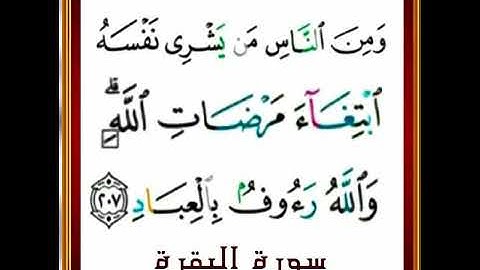 وَمِنَ ٱلنَّاسِ مَن يَشْرِى نَفْسَهُ
ٱبْتِغَآءَ مَرْضَاتِ ٱللَّهِ ۗ
وَٱللَّهُ رَءُوفٌۢ بِٱلْعِبَادِ ٢٠٧
سورة البقرة